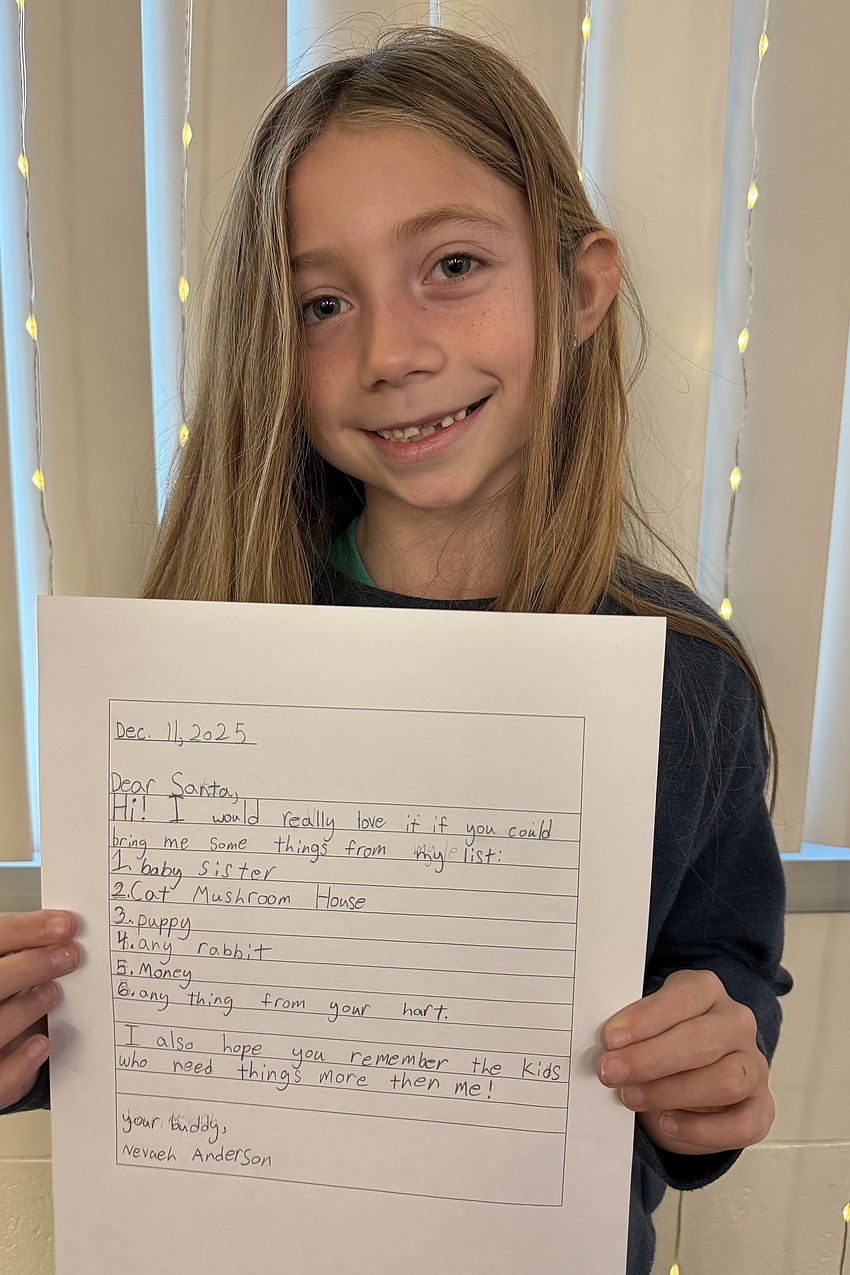 Dec. 11, 2025
Dear Santa,
Hi! I would really love it if you could
bring me some things from my list:
1. baby sister
2. Cat Mushroom House
3. puppy
4. any rabbit
5. Money
6. any thing from your hart.
I also hope you remember the kids
who need things more then me!
your buddy,
Nevaeh Anderson